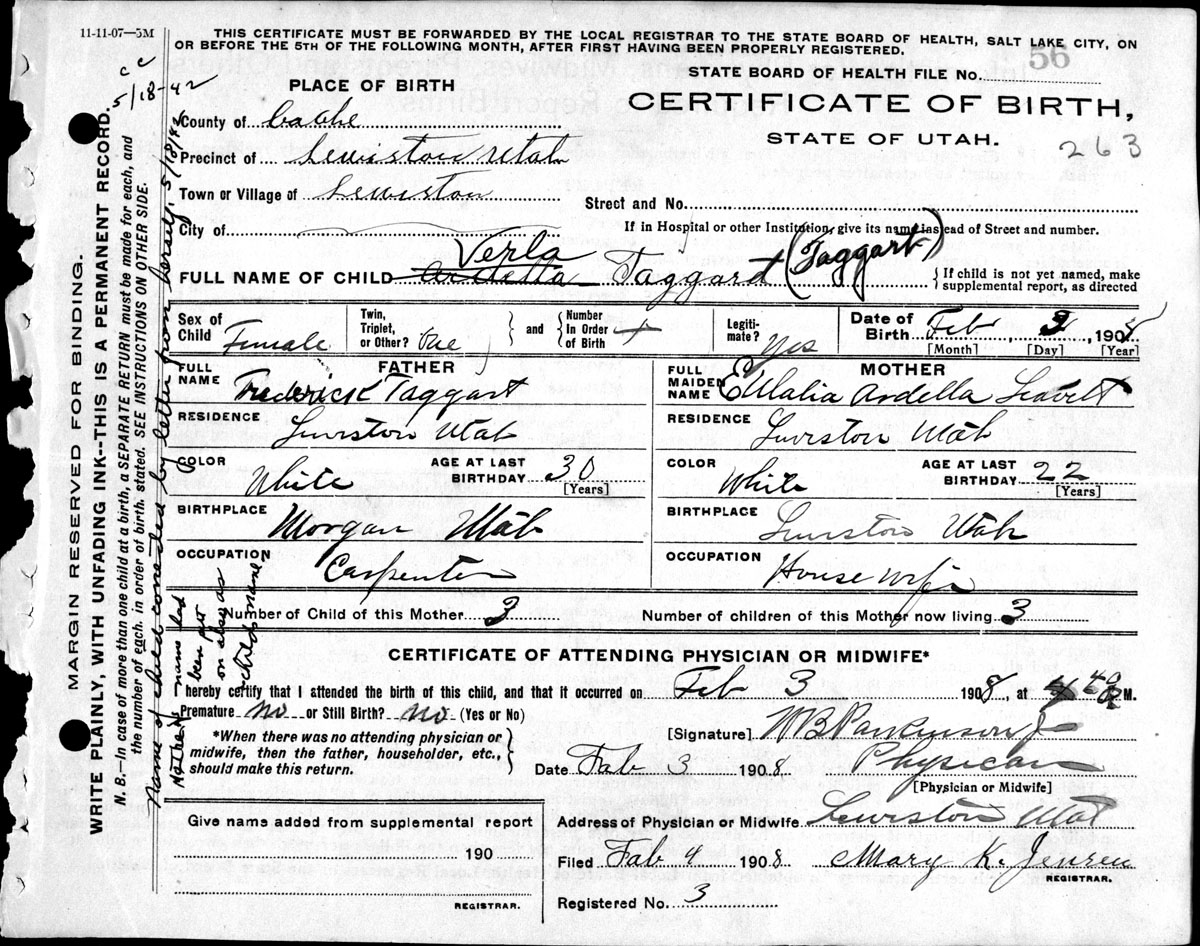 11-11-07—5M
THIS CERTIFICATE MUST BE FORWARDED BY THE LOCAL REGISTRAR TO THE STATE BOARD OF HEALTH, SALT LAKE CITY, ON
OR BEFORE THE 5TH OF THE FOLLOWING MONTH, AFTER FIRST HAVING BEEN PROPERLY REGISTERED.
cc
5/18-42
PLACE OF BIRTH
STATE BOARD OF HEALTH FILE No. 56
CERTIFICATE OF BIRTH,
STATE OF UTAH.
263
County of Cache
Precinct of Lewiston Utah
Town or Village of Lewiston
Street and No.
City of
If in Hospital or other Institution, give its name instead of Street and number.
Verla
FULL NAME OF CHILD Ardella Taggard (Taggart)
If child is not yet named, make
supplemental report, as directed
Sex of Child Female
Twin, Triplet, or Other? One
and
Number In Order of Birth
Legiti-mate? Yes
Date of Birth Feb 3, 1908
[Month] [Day] [Year]
FATHER
MOTHER
FULL NAME Frederick Taggart
FULL MAIDEN NAME Eulalia Ardella Leavitt
RESIDENCE Lewiston Utah
RESIDENCE Lewiston Utah
COLOR White
AGE AT LAST BIRTHDAY 30 [Years]
COLOR White
AGE AT LAST BIRTHDAY 22 [Years]
BIRTHPLACE Morgan Utah
BIRTHPLACE Lewiston Utah
OCCUPATION Carpenter
OCCUPATION House wife
Number of Child of this Mother 3
Number of children of this Mother now living 3
CERTIFICATE OF ATTENDING PHYSICIAN OR MIDWIFE*
I hereby certify that I attended the birth of this child, and that it occurred on Feb 3 1908, at 4 40 M.
Premature no or Still Birth? no (Yes or No)
[Signature] WB Parkinson Jr
*When there was no attending physician or
midwife, then the father, householder, etc.,
should make this return.
Date Feb 3 1908
Physican
[Physician or Midwife]
Give name added from supplemental report
190
REGISTRAR.
Address of Physician or Midwife Lewiston Utah
Filed Feb 4 1908 Mary K. Jensen
REGISTRAR.
Registered No. 3
MARGIN RESERVED FOR BINDING.
WRITE PLAINLY, WITH UNFADING INK--THIS IS A PERMANENT RECORD.
N. B.—In case of more than one child at a birth, a SEPARATE RETURN must be made for each, and
the number of each, in order of birth, stated. SEE INSTRUCTIONS ON OTHER SIDE.
Name of child corrected by letter from herself, 5/18/42
Mother's name had
been put
on also as
child's name